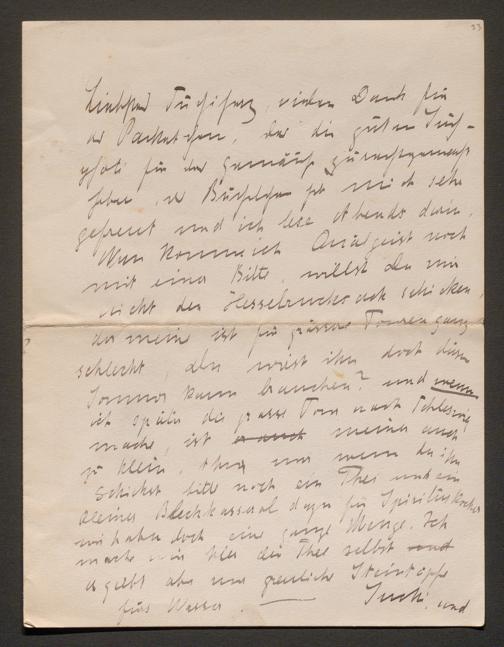 33
vielen Dank für
das Packetchen, das die guten
für das
haben, das Büchelchen hat mich sehr
gefreut und ich lese Abends darin.
Nun komme ich noch
mit einer Bitte, willst du mir
nicht den Hesselrucksack schicken,
da mein ist für grössere Touren ganz
schlecht, du wirst ihn doch diesen
Sommer kaum brauchen? und wenn
ich später die grosse Tour nach Schleswig
mache, ist meiner auch
zu klein, und wenn du ihn
schickst bitte noch ein Thee und ein
kleines dazu für Spirituskocher
wir haben doch eine ganze Menge. Ich
mache mir hier den Thee selbst und
es giebt aber nur greuliche Steintöpfe
fürs Wasser. und